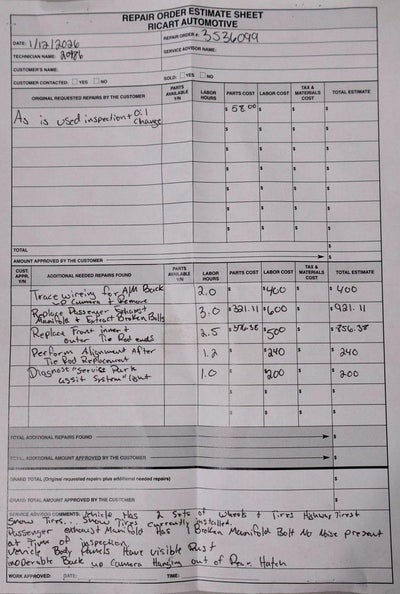 REPAIR ORDER ESTIMATE SHEET
RICART AUTOMOTIVE
DATE: 1/12/2026 REPAIR ORDER #: 3536099
TECHNICIAN NAME: 20986 SERVICE ADVISOR NAME:
CUSTOMER'S NAME:
CUSTOMER CONTACTED: YES NO SOLD: YES NO
ORIGINAL REQUESTED REPAIRS BY THE CUSTOMER PARTS AVAILABLE Y/N LABOR HOURS PARTS COST LABOR COST TAX & MATERIALS COST TOTAL ESTIMATE
As is used inspection + Oil Change $58.00 $ $ $
$ $ $ $
$ $ $ $
$ $ $ $
$ $ $ $
$ $ $ $
TOTAL $
AMOUNT APPROVED BY THE CUSTOMER $
CUST. APPR. Y/N ADDITIONAL NEEDED REPAIRS FOUND PARTS AVAILABLE Y/N LABOR HOURS PARTS COST LABOR COST TAX & MATERIALS COST TOTAL ESTIMATE
Trace wireing for A/M Back up Camera + Remove 2.0 $ $400 $ $400
Replace Passenger Exhaust Manifold + Extract Broken Bolts 3.0 $321.11 $600 $ $921.11
Replace Front inner + outer Tie Rod ends 2.5 $ $500 $ $
Perform Alignment After Tie Rod Replacment 1.2 $ $240 $ $240
Diagnost "Service Park assit System" 1.0 $ $200 $ $200
$ $ $ $
$ $ $ $
TOTAL ADDITIONAL REPAIRS FOUND $
TOTAL ADDITIONAL AMOUNT APPROVED BY THE CUSTOMER $
GRAND TOTAL (Original requested repairs plus additional needed repairs) $
GRAND TOTAL AMOUNT APPROVED BY THE CUSTOMER $
SERVICE ADVISOR COMMENTS: Vehicle Has 2 sets of wheels + Tires Highway Tires +
Snow Tires. Snow Tires currently installed.
Passenger exhaust Manifold Has 1 Broken Manifold Bolt No Noise present
at Time of inspection
Vehicle Body Panels Have visible Rust
inoperable Back up Camera Hanging out of Rear Hatch
WORK APPROVED: DATE: TIME: